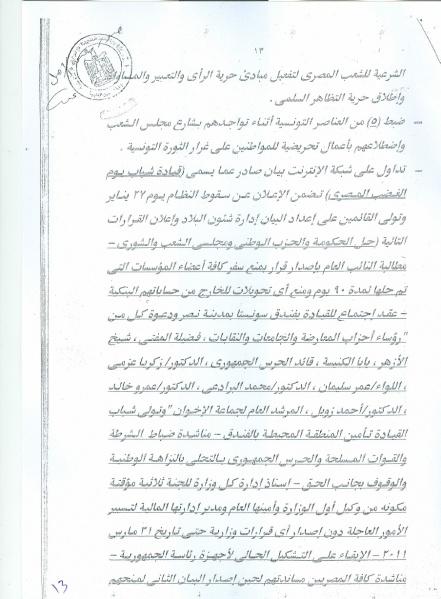 ١٣
الشرعية للشعب المصرى لتفعيل مبادئ حرية الرأى والتعبير والمساواة
وإطلاق حرية التظاهر السلمى .
– ضبط (٥) من العناصر التونسية أثناء تواجدهم بشارع مجلس الشعب
وإضطلاعهم بأعمال تحريضية للمواطنين على غرار الثورة التونسية .
– تداول على شبكة الإنترنت بيان صادر عما يسمى (قيادة شباب يوم
الغضب المصرى) تضمن الإعلان عن سقوط النظام يوم ٢٧ يناير
وتولى القائمين على إعداد البيان إدارة شئون البلاد وإعلان القرارات
التالية (حل الحكومة والحزب الوطنى ومجلسى الشعب والشورى –
مطالبة النائب العام بإصدار قرار بمنع سفر كافة أعضاء المؤسسات التى
تم حلها لمدة ٩٠ يوم ومنع أى تحويلات للخارج من حساباتهم البنكية
– عقد إجتماع للقيادة بفندق سونستا بمدينة نصر ودعوة كل من
"رؤساء أحزاب المعارضة والجامعات والنقابات ، فضيلة المفتى ، شيخ
الأزهر ، بابا الكنيسة ، قائد الحرس الجمهورى ، الدكتور/ زكريا عزمى
، اللواء/عمر سليمان ، الدكتور/محمد البرادعى ، الدكتور/عمرو خالد
، الدكتور/أحمد زويل ، المرشد العام لجماعة الإخوان" وتولى شباب
القيادة تأمين المنطقة المحيطة بالفندق – مناشدة ضباط الشرطة
والقوات المسلحة والحرس الجمهورى بالتحلى بالنزاهة الوطنية
والوقوف بجانب الحق – إسناد إدارة كل وزارة للجنة ثلاثية مؤقتة
مكونه من وكيل أول الوزارة وأمينها العام ومدير إدارتها المالية لتسيير
الأمور العاجلة دون إصدار أى قرارات وزارية حتى تاريخ ٣١ مارس
٢٠١١ – الإبقاء على التشكيل الحالى لأجهزة رئاسة الجمهورية –
مناشدة كافة المصريين مساندتهم لحين إصدار البيان الثانى لمنحهم
١٣